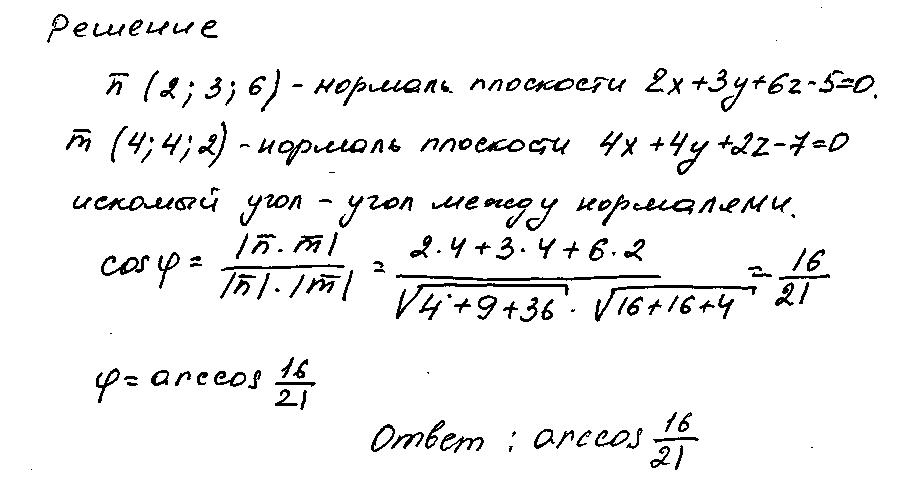 Решение
n̅ (2; 3; 6) - нормаль плоскости 2x+3y+6z-5=0.
m̅ (4; 4; 2) - нормаль плоскости 4x+4y+2z-7=0
искомый угол - угол между нормалями.
cos φ = |n̅ · m̅| / |n̅| · |m̅| = 2·4+3·4+6·2 / √4+9+36 · √16+16+4 = 16/21
φ = arccos 16/21
Ответ : arccos 16/21